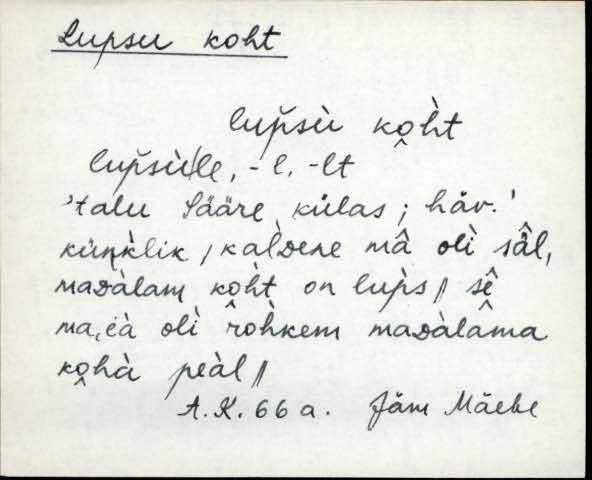 Lupsu koht
lup̆sù ko̭h̀t
lup̆sù|le, -l, -lt
'talu Sääre külas; häv.'
küŋ̀klik / kaLDene mâ olì sâl,
maDàlam ko̭h̀t on lup̀s // sê
ma,ià olì ro̭h̀kem maDàlama
ko̭hà peàl //
A.K. 66 a. Jäm Mäebe